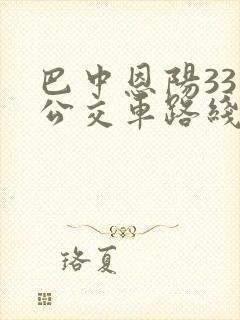 巴中恩陽33
公交車路綫
珞夏